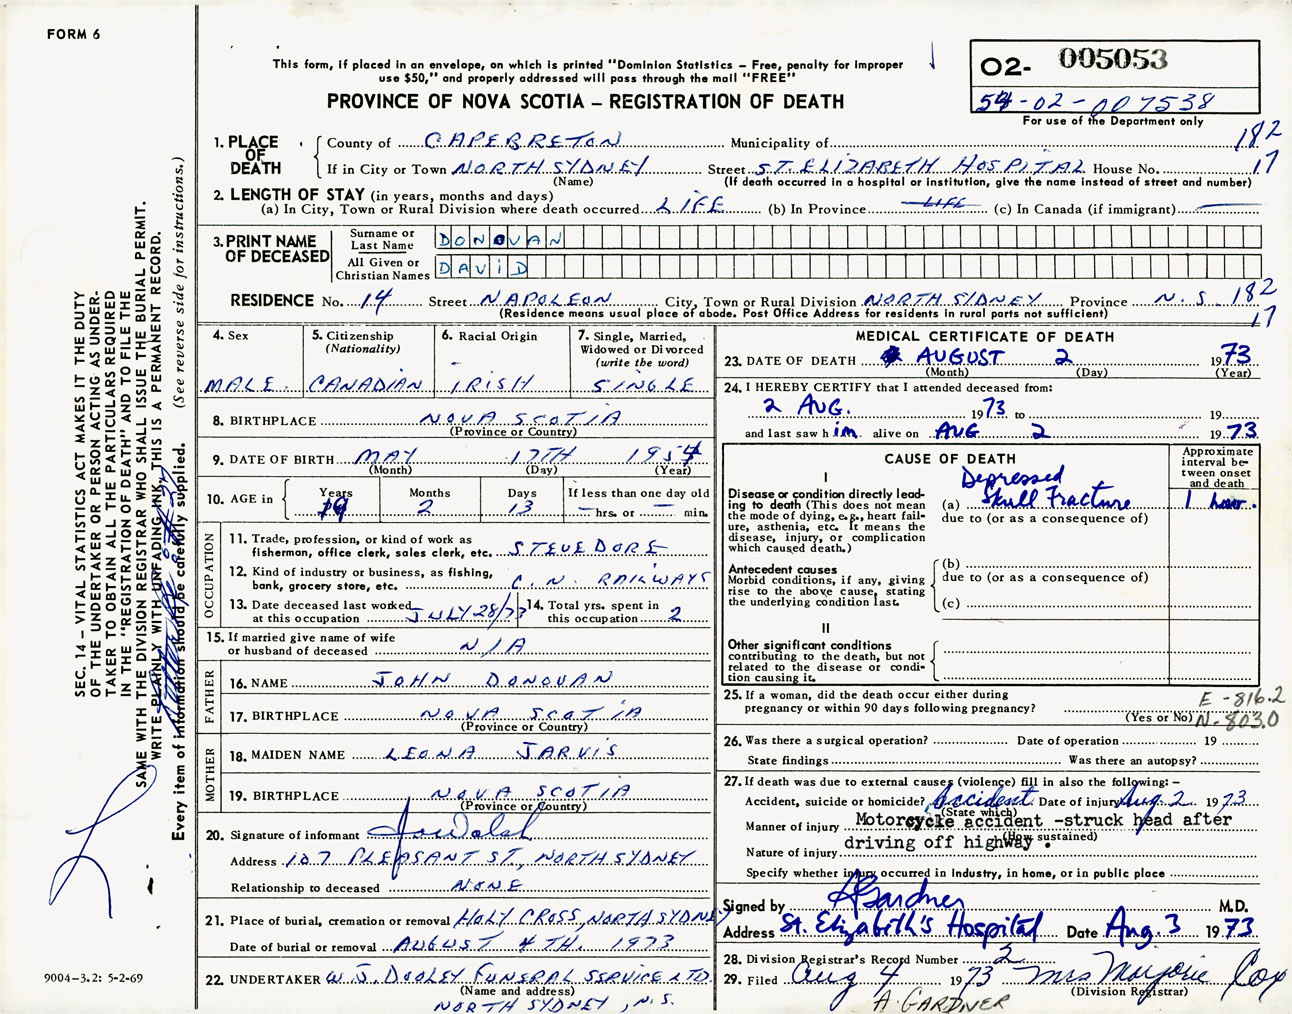 FORM 6
This form, if placed in an envelope, on which is printed "Dominion Statistics – Free, penalty for improper
use $50," and properly addressed will pass through the mail "FREE"
PROVINCE OF NOVA SCOTIA – REGISTRATION OF DEATH
02- 005053
54-02-007538
For use of the Department only
1. PLACE OF DEATH
County of CAPE BRETON Municipality of 182
If in City or Town NORTH SYDNEY Street ST. ELIZABETH HOSPITAL House No. 17
(Name) (If death occurred in a hospital or institution, give the name instead of street and number)
2. LENGTH OF STAY (in years, months and days)
(a) In City, Town or Rural Division where death occurred LIFE (b) In Province LIFE (c) In Canada (if immigrant)
3. PRINT NAME OF DECEASED
Surname or Last Name DONOVAN
All Given or Christian Names DAVID
RESIDENCE No. 14 Street NAPOLEON City, Town or Rural Division NORTH SYDNEY Province N.S. 182
(Residence means usual place of abode. Post Office Address for residents in rural parts not sufficient) 17
4. Sex
MALE
5. Citizenship
(Nationality)
CANADIAN
6. Racial Origin
IRISH
7. Single, Married,
Widowed or Divorced
(write the word)
SINGLE
8. BIRTHPLACE NOVA SCOTIA
(Province or Country)
9. DATE OF BIRTH MAY 17TH 1954
(Month) (Day) (Year)
10. AGE in
Years Months Days If less than one day old
19 2 13 – hrs. or – min.
OCCUPATION
11. Trade, profession, or kind of work as
fisherman, office clerk, sales clerk, etc. STEVEDORE
12. Kind of industry or business, as fishing,
bank, grocery store, etc. C. N. RAILWAYS
13. Date deceased last worked
at this occupation JULY 28/73
14. Total yrs. spent in
this occupation 2
15. If married give name of wife
or husband of deceased N/A
FATHER
16. NAME JOHN DONOVAN
17. BIRTHPLACE NOVA SCOTIA
(Province or Country)
MOTHER
18. MAIDEN NAME LEONA JARVIS
19. BIRTHPLACE NOVA SCOTIA
(Province or Country)
20. Signature of informant Walsh
Address 107 PLEASANT ST., NORTH SYDNEY
Relationship to deceased NONE
21. Place of burial, cremation or removal HOLY CROSS, NORTH SYDNEY
Date of burial or removal AUGUST 4TH. 1973
22. UNDERTAKER W. J. DOOLEY FUNERAL SERVICE LTD.
(Name and address)
NORTH SYDNEY, N.S.
MEDICAL CERTIFICATE OF DEATH
23. DATE OF DEATH AUGUST 2 1973
(Month) (Day) (Year)
24. I HEREBY CERTIFY that I attended deceased from:
2 AUG. 1973 to 19
and last saw him alive on AUG 2 1973
CAUSE OF DEATH
Approximate
interval be-
tween onset
and death
I
Disease or condition directly lead-
ing to death (This does not mean
the mode of dying, e.g., heart fail-
ure, asthenia, etc. It means the
disease, injury, or complication
which caused death.)
Depressed
(a) Skull Fracture 1 hour.
due to (or as a consequence of)
Antecedent causes
Morbid conditions, if any, giving
rise to the above cause, stating
the underlying condition last.
(b)
due to (or as a consequence of)
(c)
II
Other significant conditions
contributing to the death, but not
related to the disease or condi-
tion causing it.
25. If a woman, did the death occur either during
pregnancy or within 90 days following pregnancy?
(Yes or No)
E-816.2
N-803.0
26. Was there a surgical operation? Date of operation 19
State findings Was there an autopsy?
27. If death was due to external causes (violence) fill in also the following: –
Accident, suicide or homicide? Accident Date of injury Aug. 2 1973
(State which)
Manner of injury Motorcycle accident -struck head after
(How sustained)
Nature of injury driving off highway.
Specify whether injury occurred in industry, in home, or in public place
Signed by A Gardner M.D.
Address St. Elizabeth's Hospital Date Aug. 3 1973
28. Division Registrar's Record Number 2
29. Filed Aug 4 1973 Mrs Marjorie Cox
(Division Registrar)
A. GARDNER
SEC. 14 – VITAL STATISTICS ACT MAKES IT THE DUTY
OF THE UNDERTAKER OR PERSON ACTING AS UNDER-
TAKER TO OBTAIN ALL THE PARTICULARS REQUIRED
IN THE "REGISTRATION OF DEATH" AND TO FILE THE
SAME WITH THE DIVISION REGISTRAR WHO SHALL ISSUE THE BURIAL PERMIT.
WRITE PLAINLY WITH UNFADING INK, THIS IS A PERMANENT RECORD.
Every item of information should be carefully supplied. (See reverse side for instructions.)
9004-3.2: 5-2-69